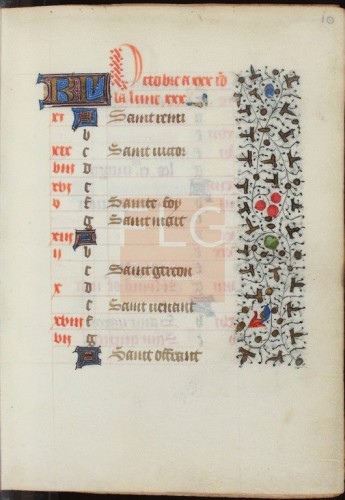 10
KL Octobre a xxxi io
la lune xxx
xi A Saint remi
b
xix c Saint victor
viii d
xvi e
v f Sainte foy
g Saint marc
xiii A
ii b
c Saint gereon
x d
e Saint venant
xviii f
vii g
A Saint
FLG